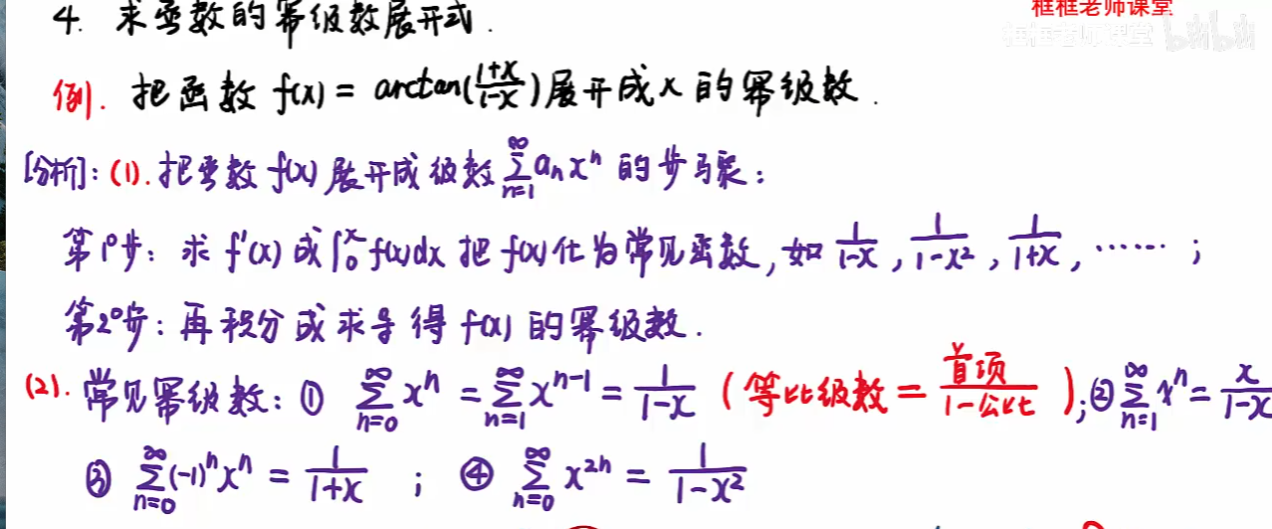 框框老师课堂
框框老师课堂 bilibili
4. 求函数的幂级数展开式.
例. 把函数 f(x) = arctan(\frac{1+x}{1-x}) 展开成 x 的幂级数.
[分析]: (1). 把函数 f(x) 展开成级数 \sum_{n=1}^{∞} a_n x^n 的步骤:
第1°步: 求 f'(x) 或 \int_0^x f(x)dx 把 f(x) 化为常见函数, 如 \frac{1}{1-x}, \frac{1}{1-x^2}, \frac{1}{1+x}, ……;
第2°步: 再积分或求导得 f(x) 的幂级数.
(2). 常见幂级数: ① \sum_{n=0}^{∞} x^n = \sum_{n=1}^{∞} x^{n-1} = \frac{1}{1-x} (等比级数 = \frac{首项}{1-公比}); ② \sum_{n=1}^{∞} x^n = \frac{x}{1-x}
③ \sum_{n=0}^{∞} (-1)^n x^n = \frac{1}{1+x} ; ④ \sum_{n=0}^{∞} x^{2n} = \frac{1}{1-x^2}